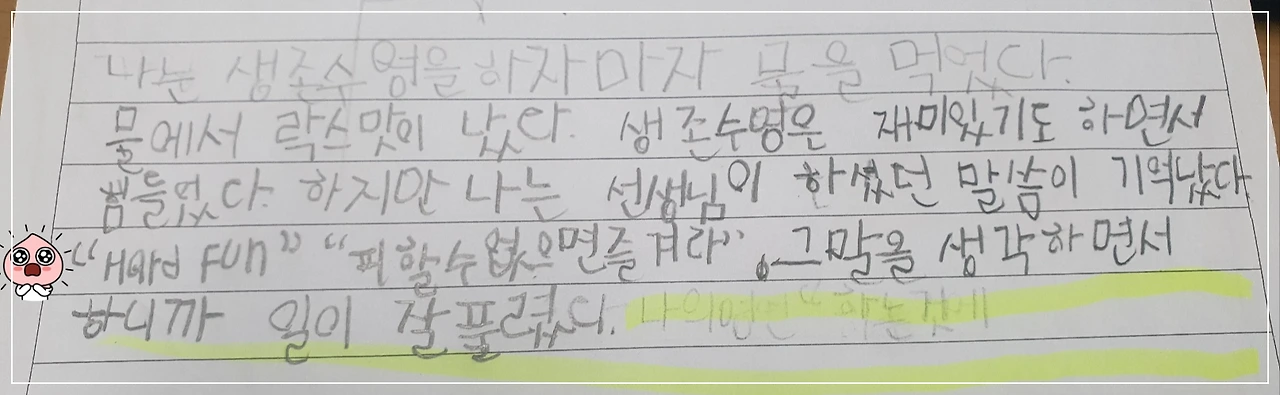 나는 생존수영을하자마자 물을 먹었다.
물에서 락스맛이 났다. 생존수영은 재미있기도 하면서
힘들었다. 하지만 나는 선생님이 하셨던 말씀이 기억났다
"피할수없으면즐겨라", 그말을 생각하면서
하니까 일이 잘풀렸다.